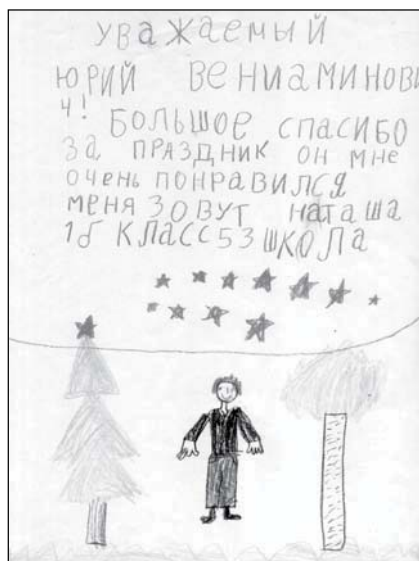 Уважаемый
Юрий Вениаминови
ч! Большое спасибо
за праздник он мне
очень понравился
меня зовут наташа
1б класс 53 школа